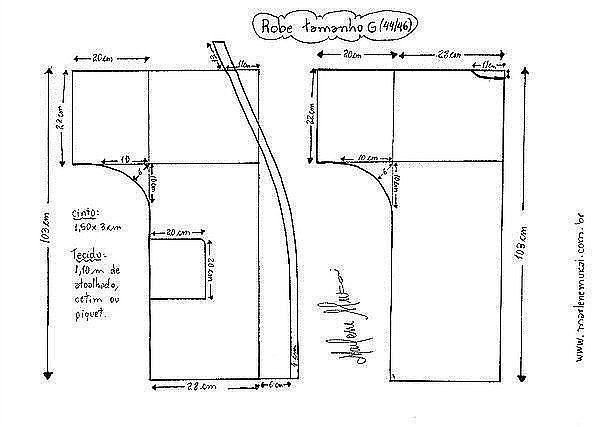 Robe tamanho G (44/46)
20 cm
11cm
22 cm
10
6
10cm
103 cm
cinto:
1,50 x 3 cm
Tecido:
1,10 m de
atoalhado,
cetim ou
piquet.
20 cm
20 cm
4 cm
28 cm
6 cm
20 cm
28 cm
11cm
22 cm
10 cm
6
10cm
103 cm
Marlene Mukai
www.marlenemukai.com.br